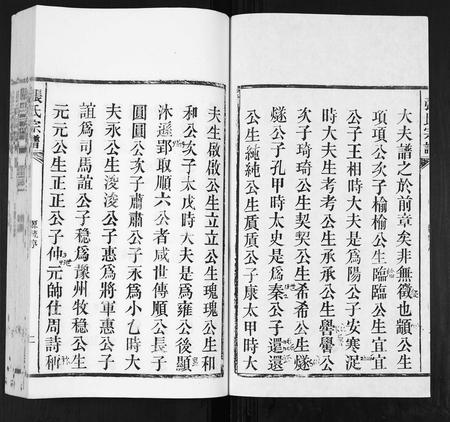 大夫譜之於前章矣非無徵也顓公生
項項公次子榆榆公生臨臨公生宜宜
公子王相時大夫是爲陽公子安寒浞
時大夫生考考公生承承公生譽譽公
次子琦琦公生契契公生希希公生燧
燧公子孔甲時太史是爲秦公子還還
公生純純公生盾盾公子康太甲時大
夫生啟啟公生立立公生瑰瑰公生和
和公次子太戊時大夫是爲雍公後顯
沐遜郢取順六公者咸世傳順公長子
圓圓公次子肅肅公子永爲小乙時大
夫永公生浚浚公子惠爲將軍惠公子
誼爲司馬誼公子穩爲豫州牧穩公生
元元公生正正公子仲元師仕周詩稱
張氏宗譜